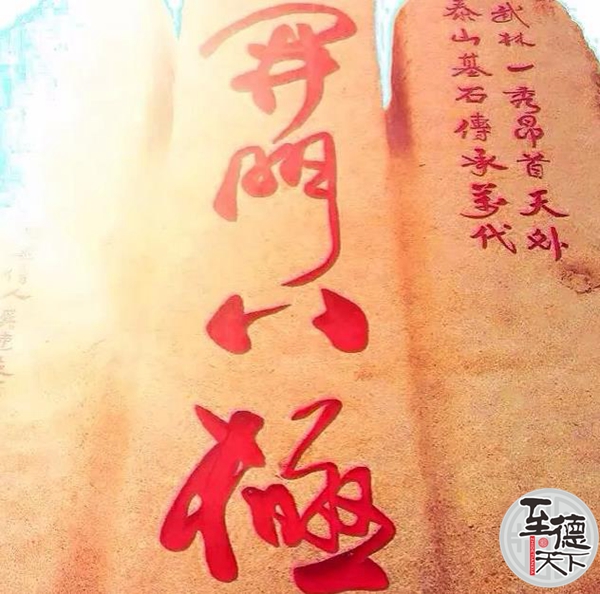 武林一秀昂首天外
泰山基石傳承萬代
開門八極
至德天下